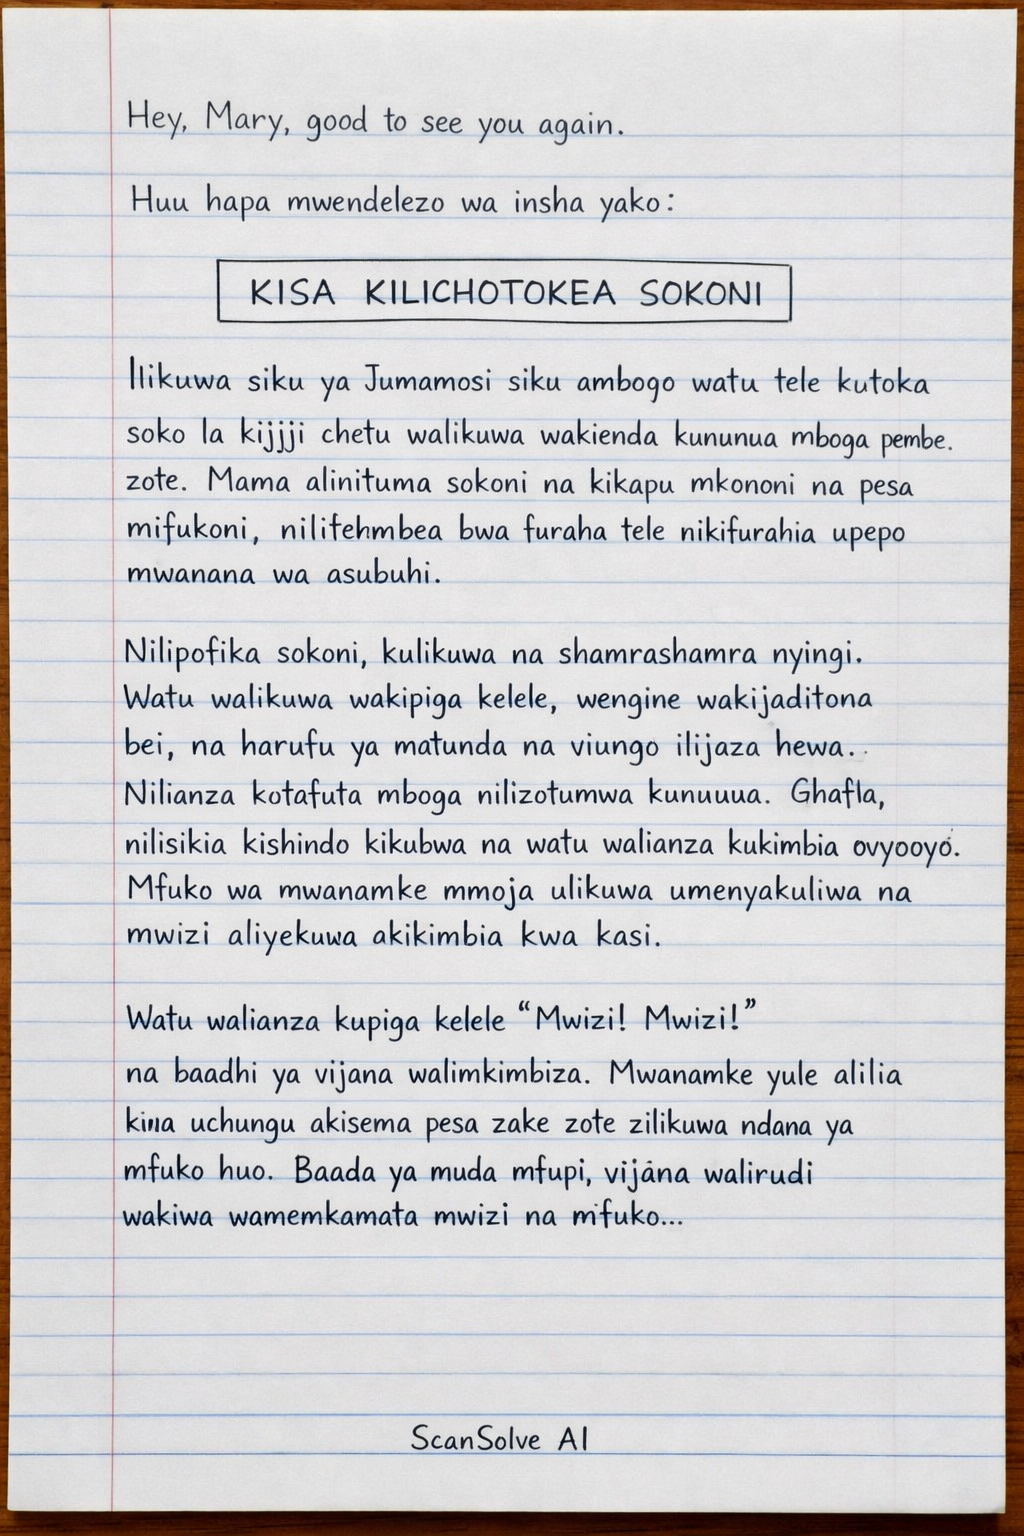 Hey, Mary, good to see you again.
Huu hapa mwendelezo wa insha yako:
KISA KILICHOTOKEA SOKONI
Ilikuwa siku ya Jumamosi siku ambogo watu tele kutoka
soko la kijjji chetu walikuwa wakienda kununua mboga pembe.
zote. Mama alinituma sokoni na kikapu mkononi na pesa
mifukoni, nilitehmbea bwa furaha tele nikifurahia upepo
mwanana wa asubuhi.
Nilipofika sokoni, kulikuwa na shamrashamra nyingi.
Watu walikuwa wakipiga kelele, wengine wakijaditona
bei, na harufu ya matunda na viungo ilijaza hewa.
Nilianza kotafuta mboga nilizotumwa kunuuua. Ghafla,
nilisikia kishindo kikubwa na watu walianza kukimbia ovyooyo.
Mfuko wa mwanamke mmoja ulikuwa umenyakuliwa na
mwizi aliyekuwa akikimbia kwa kasi.
Watu walianza kupiga kelele “Mwizi! Mwizi!”
na baadhi ya vijana walimkimbiza. Mwanamke yule alilia
uchungu akisema pesa zake zote zilikuwa ndana ya
mfuko huo. Baada ya muda mfupi, vijana walirudi
wakiwa wamemkamata mwizi na mfuko...
ScanSolve AI